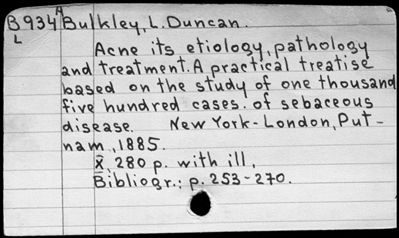 B934 A Bulkley, L. Duncan.
L
Acne its etiology, pathology
and treatment. A practical treatise
based on the study of one thousand
five hundred cases. of sebaceous
disease. New York-London, Put-
nam, 1885.
X, 280 p. with ill,
Bibliogr.: p. 253-270.